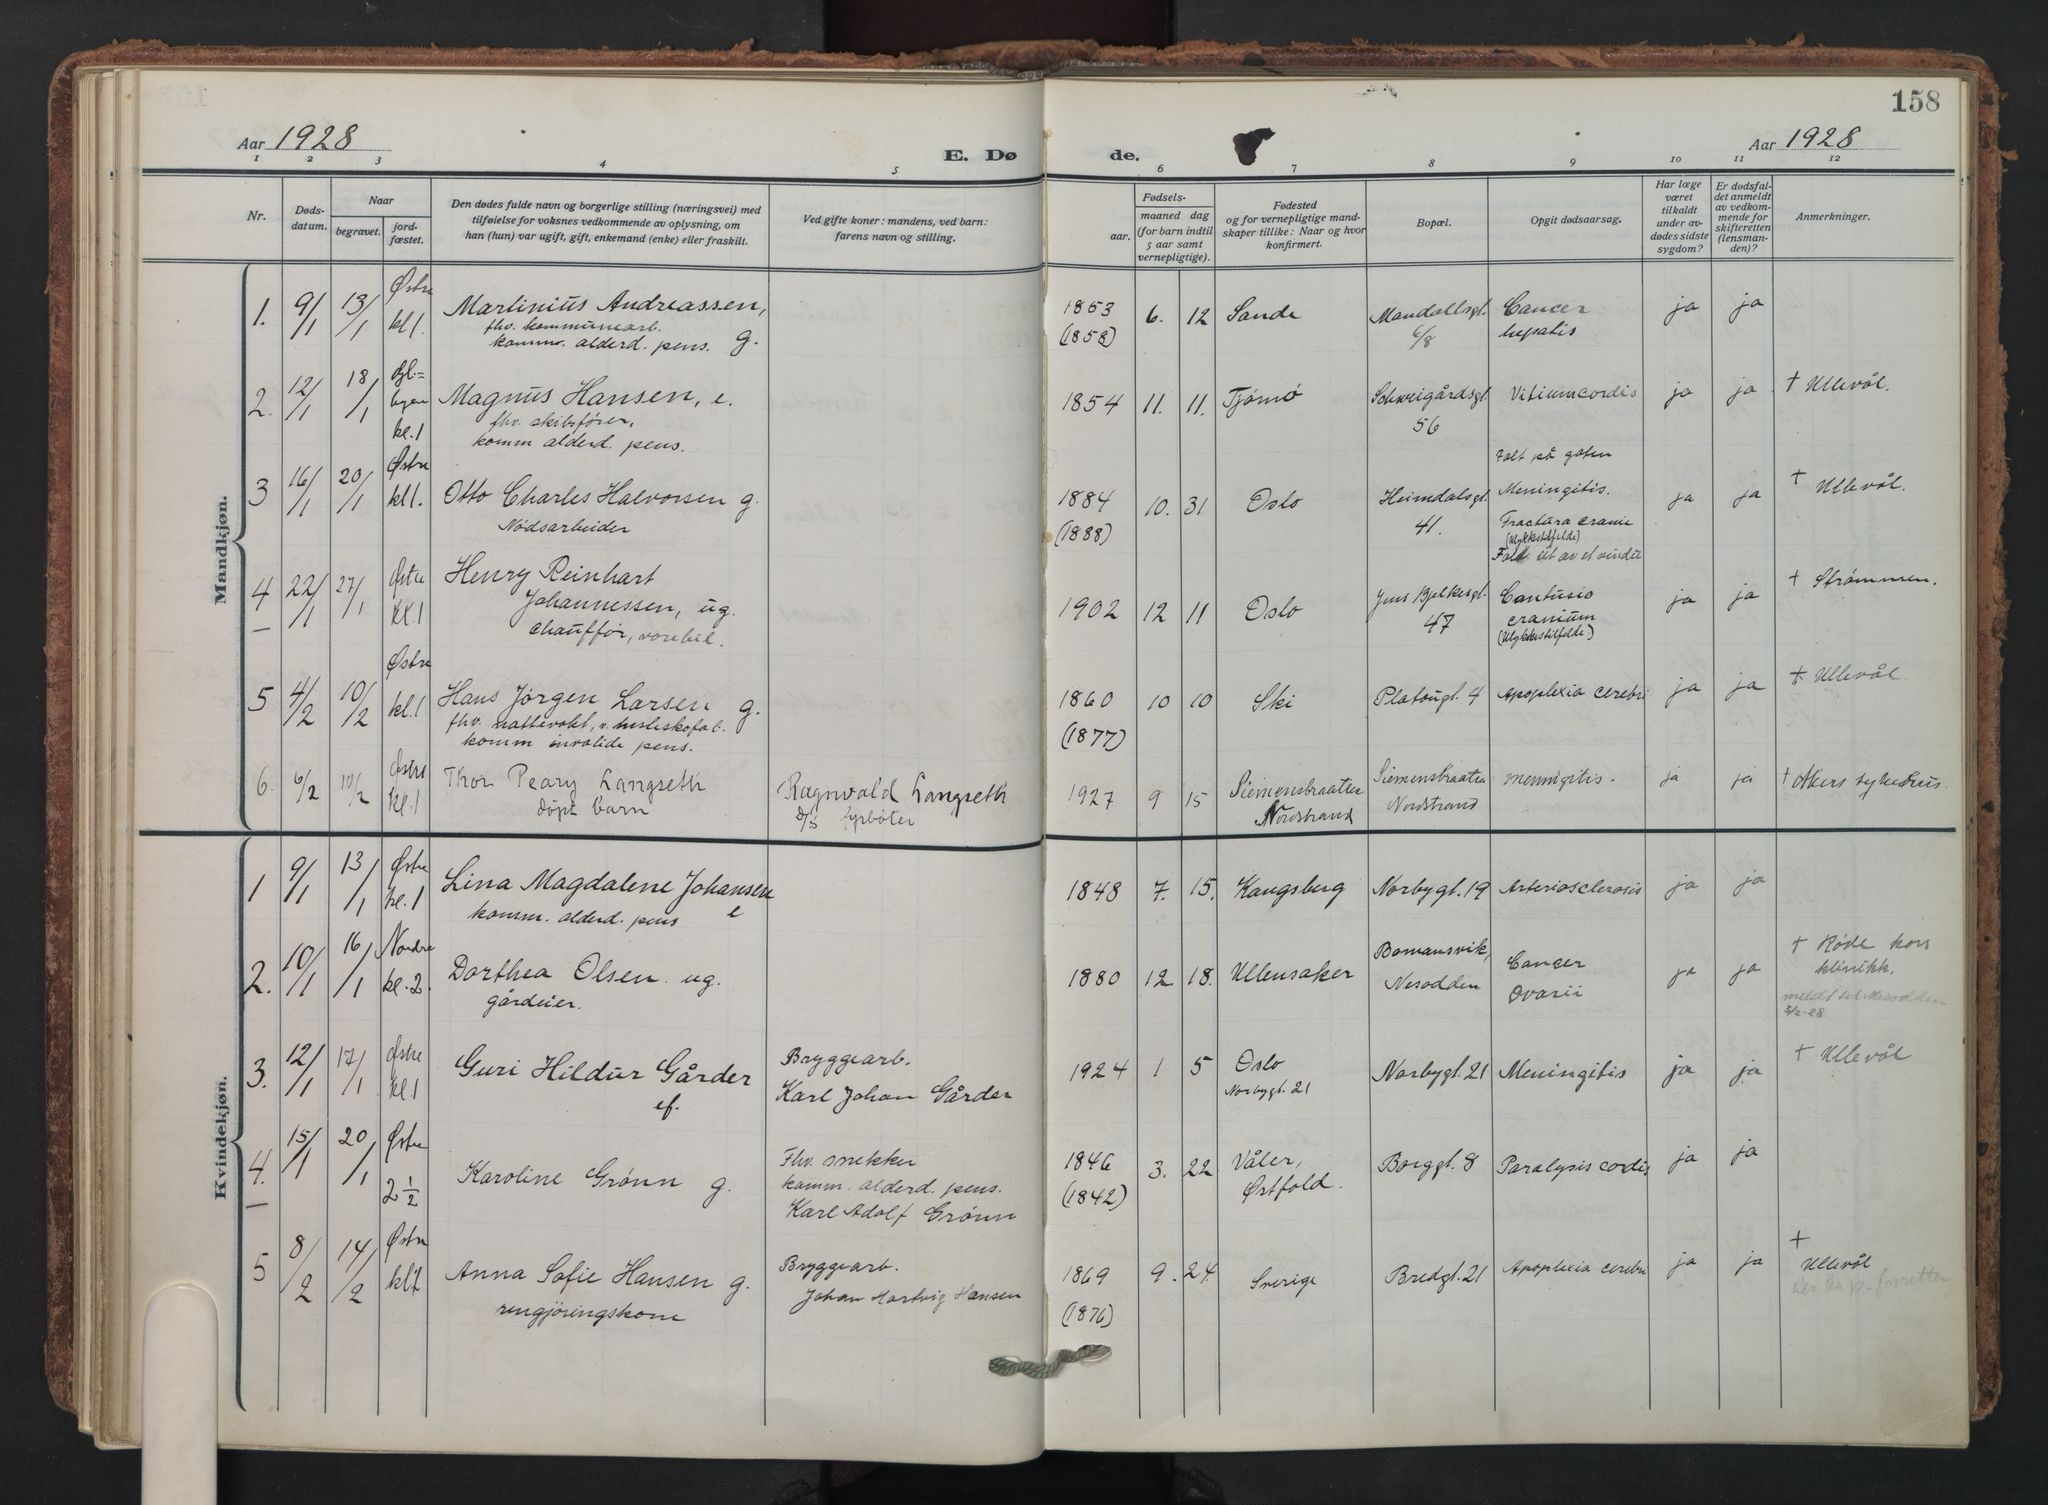 158
Aar 1928
E. Dø
de.
Aar 1928
1 2 3 4 5 6 7 8 9 10 11 12
Nr.
Døds-
datum.
Naar
begravet.
jord-
fæstet.
Den dødes fulde navn og borgerlige stilling (næringsvei) med
tilføielse for voksnes vedkommende av oplysning, om
han (hun) var ugift, gift, enkemand (enke) eller fraskilt.
Ved gifte koner: mandens, ved barn:
farens navn og stilling.
Fødsels-
aar.
maaned dag
(for barn indtil
5 aar samt
vernepligtige).
Fødested
og for vernepligtige mand-
skaper tillike: Naar og hvor
konfirmert.
Bopæl.
Opgit dødsaarsag.
Har læge
været
tilkaldt
under av-
dødes sidste
sygdom?
Er dødsfal-
det anmeldt
av vedkom-
mende for
skifteretten
(lensman-
den)?
Anmerkninger.
Mandkjøn.
1. 9/1 13/1 Østre kl 1.
Martinius Andreassen,
fhv. kommunearb.
komm. alderd. pens. g.
1853 6. 12 Sande Mandallsgt. Cancer ja ja
(1858) 6/8 hepatis
2. 12/1 18/1 kl. 1
Magnus Hansen, e.
fhv. skibsfører,
komm alderd. pens.
1854 11. 11. Tjømø Schweigårdsgt. Vitium cordis ja ja † Ullevål.
56
3 16/1 20/1 Østre kl 1.
Otto Charles Halvorsen g.
Nødsarbeider
Falt på gaten
1884 10. 31 Oslo Heimdalsgt. Meningitis. ja ja † Ullevål.
(1888) 41. Fractura cranie
(Ulykkestilfelde)
Fald ut av et vindu
4 22/1 27/1 Østre kl. 1
Henry Reinhart
Johannessen, ug.
chauffør, varebil.
1902 12 11 Oslo Jens Bjelkesgt. Contusio ja ja † Strømmen.
47 cranium
(Ulykkestilfelde)
5 4/2 10/2 Østre kl. 1
Hans Jørgen Larsen g.
fhv. nattevakt,
komm invalide pens.
1860 10 10 Ski Platougt. 4 Apoplexia cerebri ja ja † Ullevål
(1877)
6. 6/2 10/2 Østre kl. 1
Thor Peary Langseth
døpt barn
Ragnvald Langseth
D/S fyrbøter
1927 9 15 Siemensbraaten Siemensbraaten meningitis. ja ja † Akers sykehus.
Nordstrand Nordstrand
Kvindekjøn.
1 9/1 13/1 Østre kl. 1
Lina Magdalene Johansen
komm. alderd. pens e
1848 7. 15. Kongsberg Norbygt. 19 Arteriosclerosis ja ja
2. 10/1 16/1 Nordre kl. 2.
Dorthea Olsen ug.
gårdeier.
1880 12. 18. Ullensaker Bomansvik, Cancer ja ja † Røde kors
Nesodden Ovarii klinikk.
meldt til Nesodden
3/2-28
3. 12/1 17/1 Østre kl. 1
Guri Hildur Gårder
ef.
Bryggearb.
Karl Johan Gårder
1924 1 5 Oslo Norbygt. 21 Meningitis ja ja † Ullevål
Norbygt. 21
4. 15/1 20/1 Østre 2 1/2
Karoline Grønn g.
Fhv. snekker
komm. alderd. pens.
Karl Adolf Grønn
1846 3. 22 Våler, Borggt. 8 Paralysis cordis ja ja
(1842) Østfold.
5 8/2 14/2 Østre
Anna Sofie Hansen g.
rengjøringskone
Bryggearb.
Johan Hartvig Hansen
1869 9. 24. Sverige Bredgt. 21 Apoplexia cerebri ja ja † Ullevål
(1876)